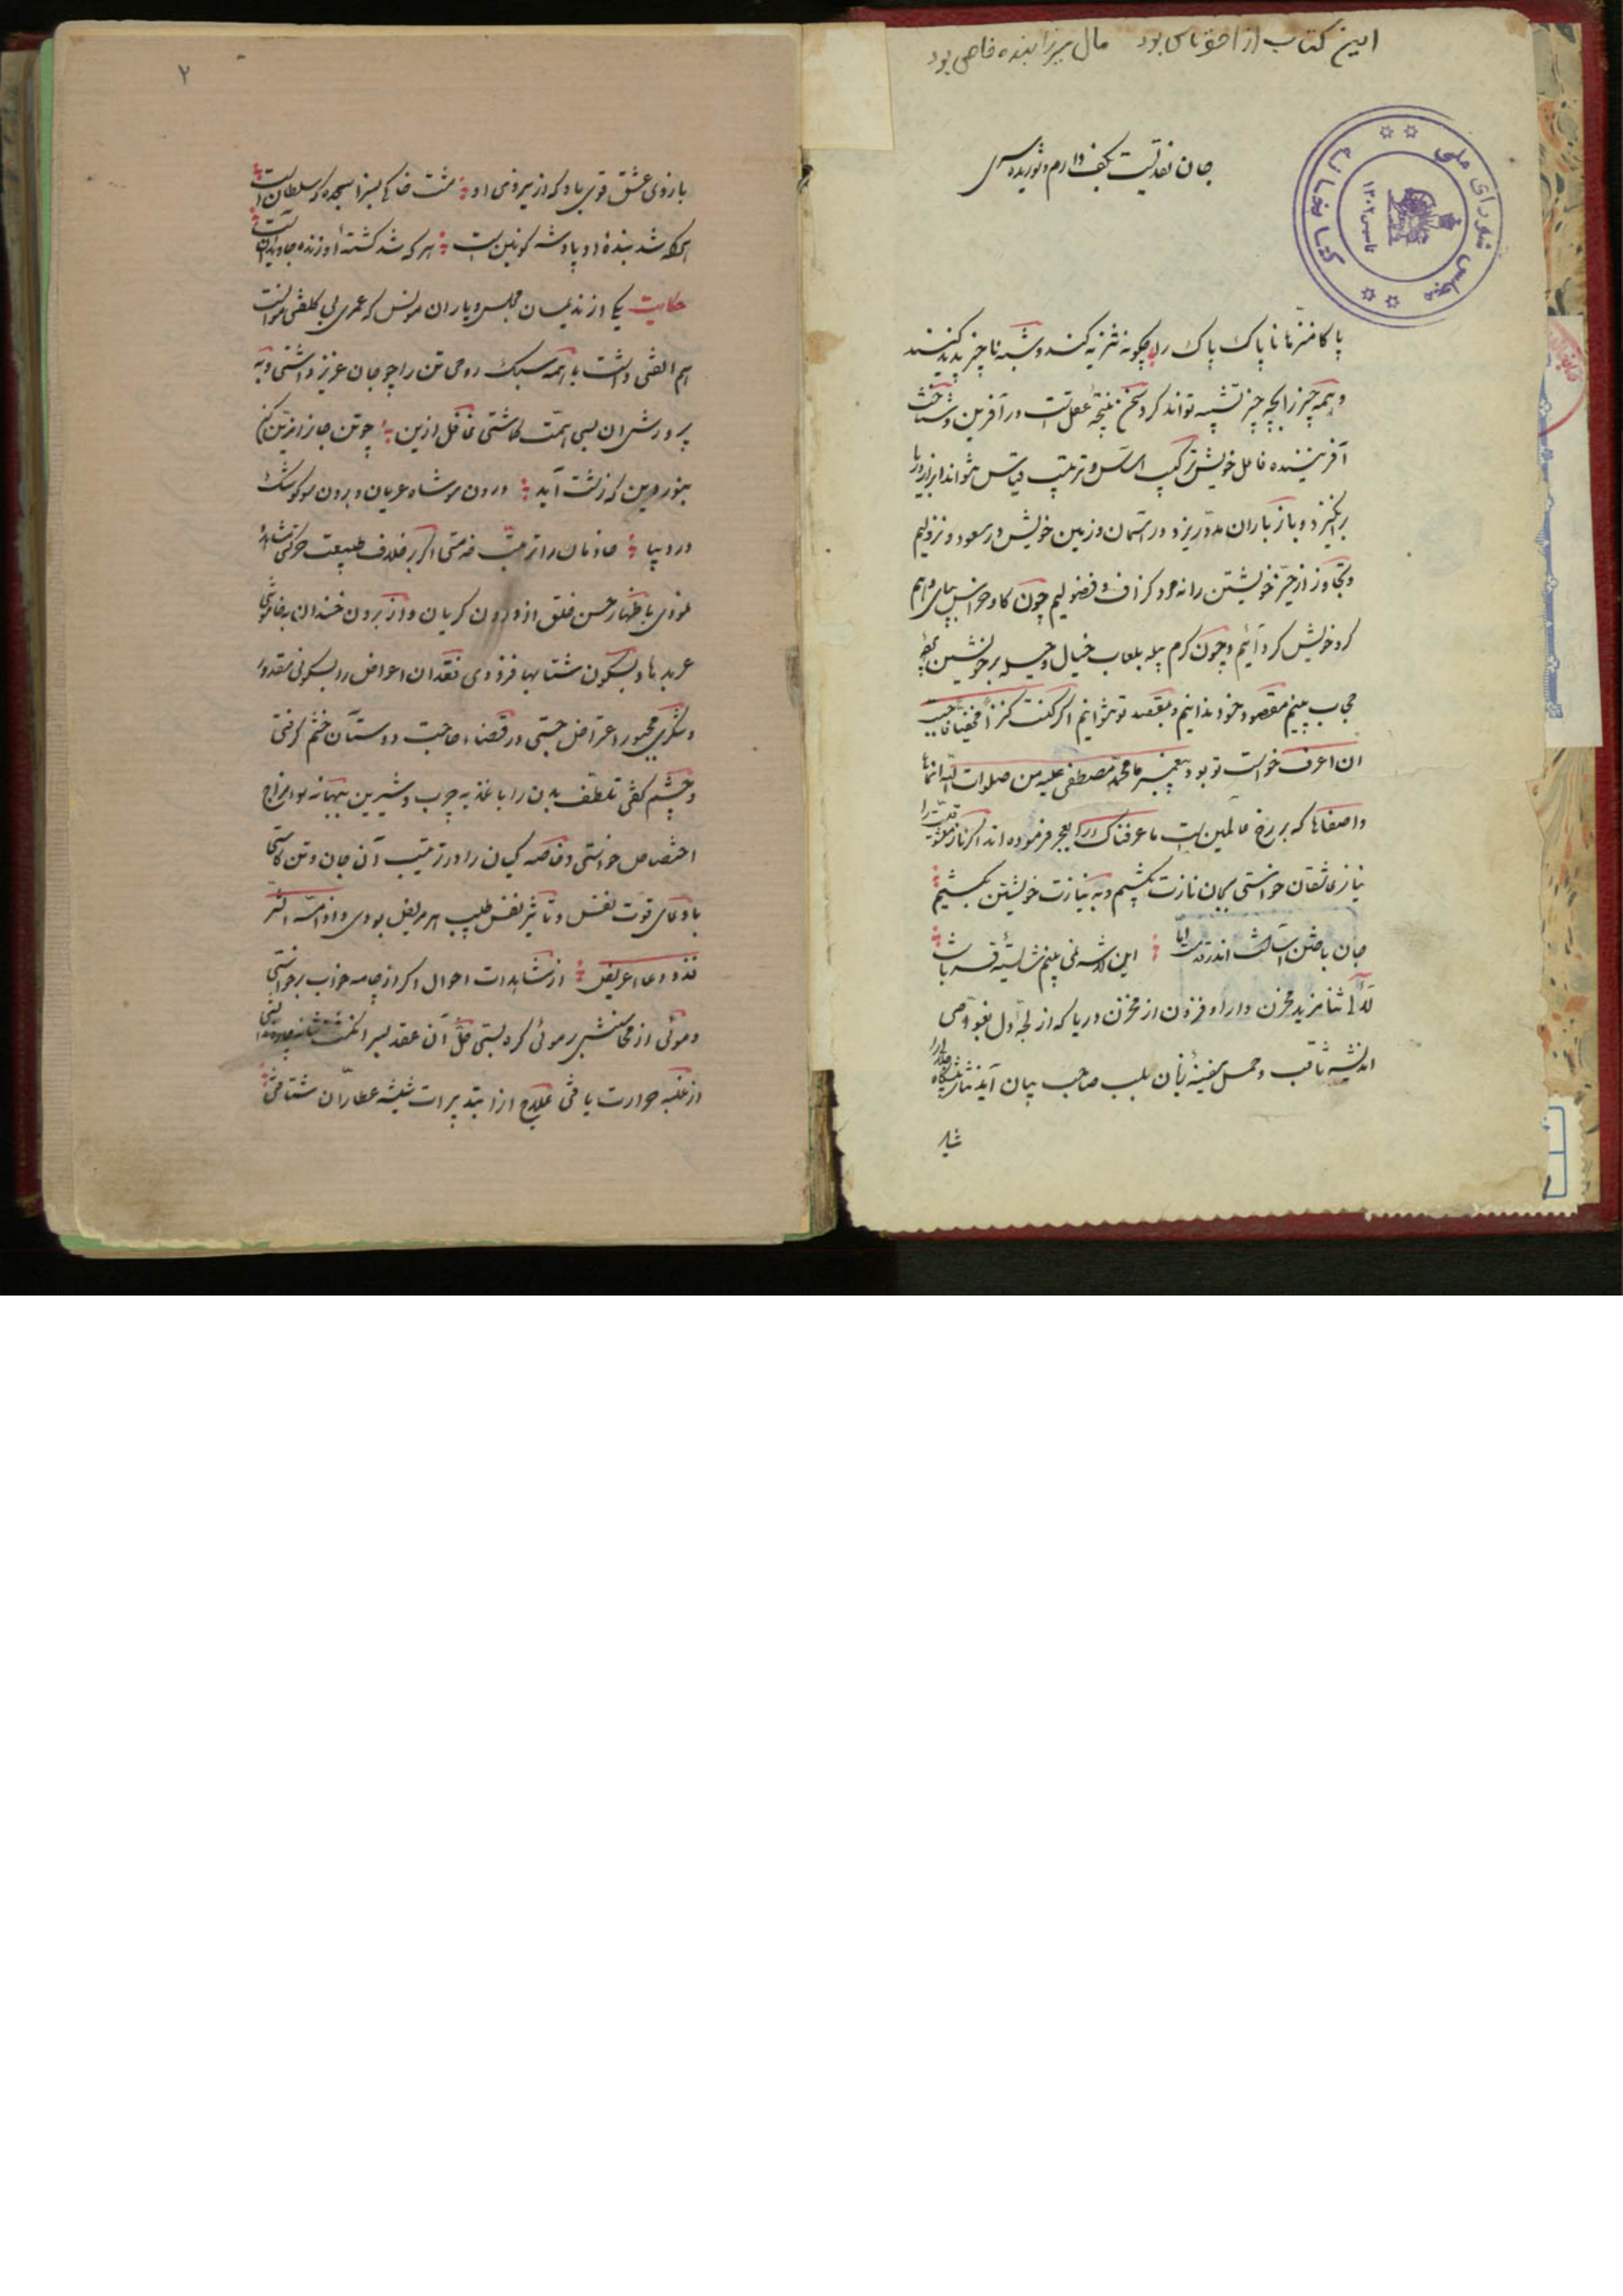 این کتاب از احقر ناس بود مال میرزا بنده خاص بود
جان نقدیست بکف دارم و شوریده سری
مجلس شورای ملی
کتابخانه
تاسیس ۱۳۰۲
پاکا منزها ناپاک پاک را چگونه تنزیه کند و شبه ناچیز پدید کنند
و همه چیز را بچه چیز تشبیه تواند کرد سخن نتیجهٔ عقل تست در آفرین و شناخت
آفریننده عامل خویش ترکیب اساس و ترتیب قیاس نتواند ابر از دریا
برانگیزد و باز باران بدو ریزد در آسمان و زمین خویش در صعود و نزولیم
و تجاوز از حیز خویشتن را نه در گزاف و فضولیم چون گاو خراس بپای وهم
گرد خویش گردانیم و چون کرم پیله بلعاب خیال و حیله بر خویشتن
حجاب بینیم مقصود خود ندانیم و بقصد تو نتوانیم اگر کنت کنزا مخفیا فاحببت
ان اعرف خواست تو بود پیغمبر ما محمد مصطفی علیه من صلوات الله انماها
و اصفاها که برزخ عالمین است ما عرفناک را بعجز فرموده اند اگر ناز معشوقیت را
نیاز عاشقان خواستی بجان نازت بکشیم و به نیازت خویشتن بکشیم
جان باختن آسانست اندر قدمت اما این لاشه نمی بینم شایسته قربانت
لآلی ثنا مزید مخزن دارا و فزون از مخزن دریا که از لجهٔ دل بغواصی
اندیشه ثاقب و حمل سفینهٔ زبان بلب صاحب بیان آید نثار پیشگاه
نثار
۲
بازوی عشق قوی باد که از نیروی او مشت خاکی بسزا سجده گه سلطان است
هر که شد بندهٔ او پادشه کونین است هر که شد کشتهٔ او زنده جاویدان است
حکایت یکی از ندیمان مجلس و یاران مونس که عمری بی کلفتی موانست
هم الفتی داشت با همه سبک روحی تن را چو جان عزیز داشتی و به
پرورش آن بسی همت گماشتی غافل ازین چو تن جانرا مزین کن
بنور دین که زشت آید درون سو شاه عریان و برون سو کوشک
در دیبا خادمان را تربیت خدمتی اگر بر خلاف طبیعت حرکتی مشاهده
نمودی باظهار حسن خلق از درون گریان و از برون خندان بخاموشی
عربدها و بسکون شتابها فزودی فقدان اعراض را بسکونی مقدور
و شکری مجبور اعتراض جستی در قضاء حاجت دوستان خشم گرفتی
و چشم گفتی تلطف بدن را باغذیه چرب و شیرین ببهانه بو و مزاج
اختصاص خواستی و خاصه کیان را در ترتیب آن جان و تن کاستی
بادعای قوت نفس و تأثیر نفس طبیب هر مریض بودی و اذا مسه الشر
فذو دعاء عریض از مشاهدات احوال اگر از جامه خواب برخواستی
و موئی از محاسنش بر موئی گره بستی حل آن عقد بسر انگشت
از غلبه حرارت یا فی علاج از ابتدا بدات شیشه عطاران شتافتی